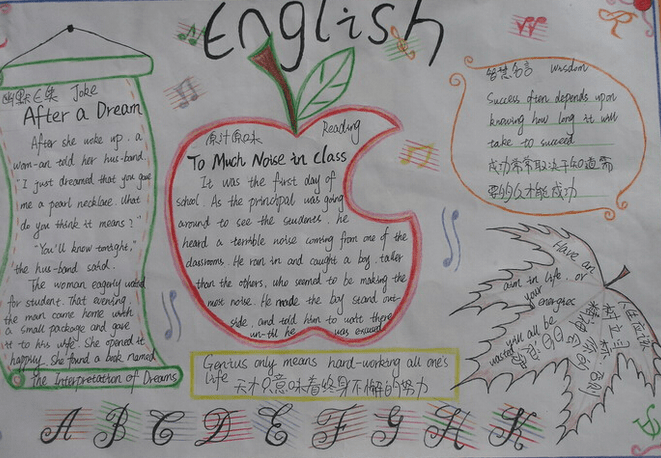 English
Joke
After a Dream
After she woke up, a
wom-an told her hus-band.
"I just dreamed that you gave
me a pearl necklace. What
do you think it means?"
"You'll know tonight,"
the hus-band said.
The woman eagerly waited
for student. That evening,
the man came home with
a small package and gave
it to his wife. She opened it
happily. She found a book named
The Interpretation of Dreams
原汁原味 Reading
To Much Noise in Class
It was the first day of
school. As the principal was going
around to see the students, he
heard a terrible noise coming from one of the
classrooms. He ran in and caught a boy, taller
than the others, who seemed to be making the
most noise. He made the boy stand out-
side, and told him to wait there
un-til he was excused
Genius only means hard-working all one's
life
天才只意味着终身不懈的努力
智慧名言 Wisdom
Success often depends upon
knowing how long it will
take to succeed
成功常常取决于知道需
要多久才能成功
Have an
aim in life, or
your energies
will all be
wasted
人生应该
树立目标
否则你的
精力会
白白
浪费
A B C D E F G H K